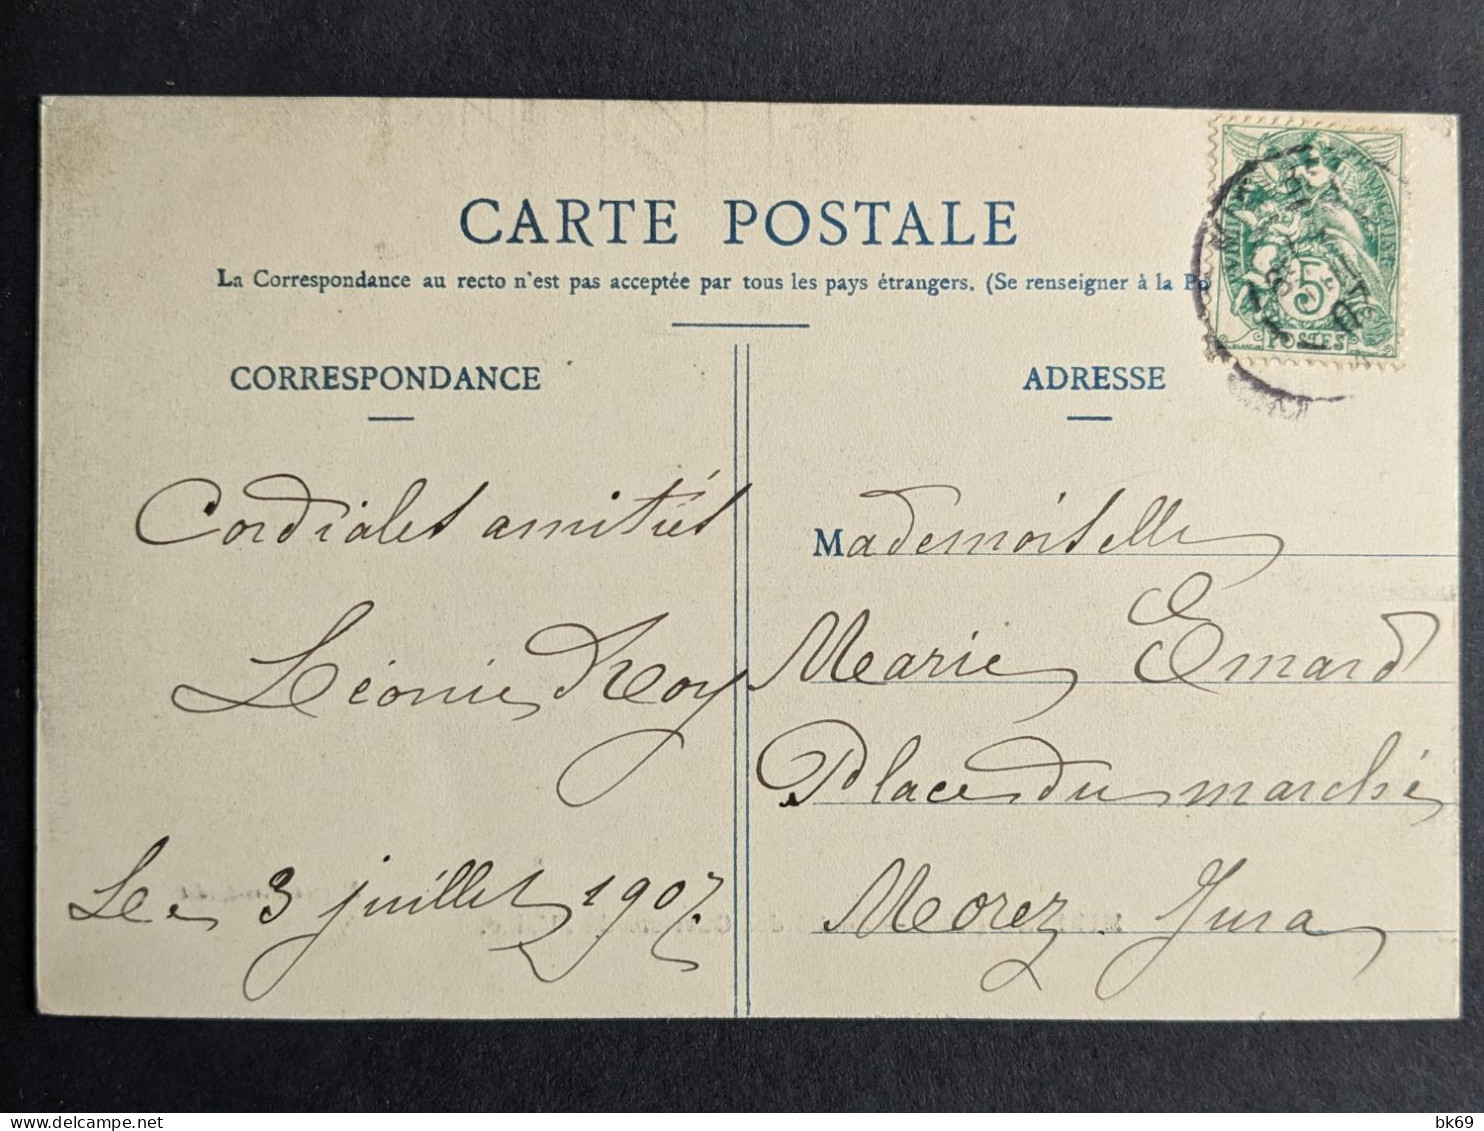 CARTE POSTALE
La Correspondance au recto n'est pas acceptée par tous les pays étrangers. (Se renseigner à la Po
CORRESPONDANCE
Cordiales amitiés
Léonie Roy
Le 3 juillet 1907.
ADRESSE
Mademoiselle
Marie Emard
Place du marché
Morez. Jura
5
POSTES
bk69